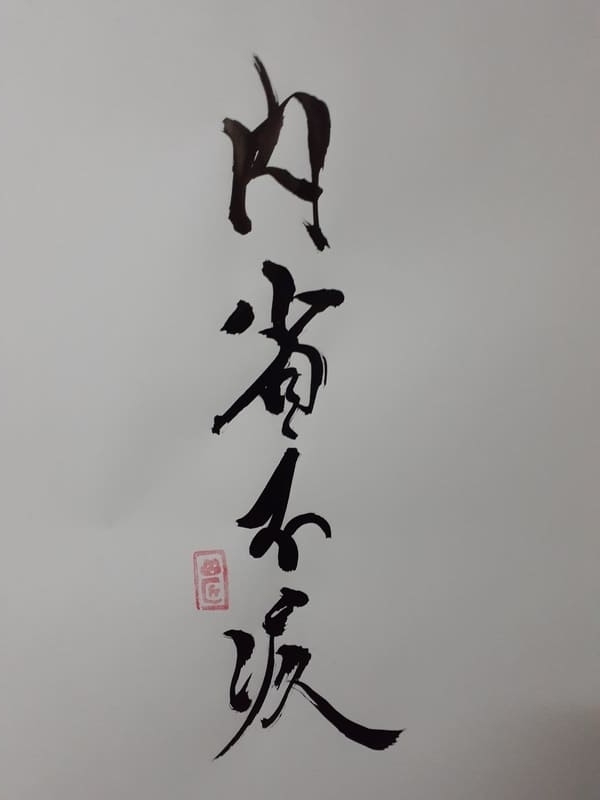 内省不疚